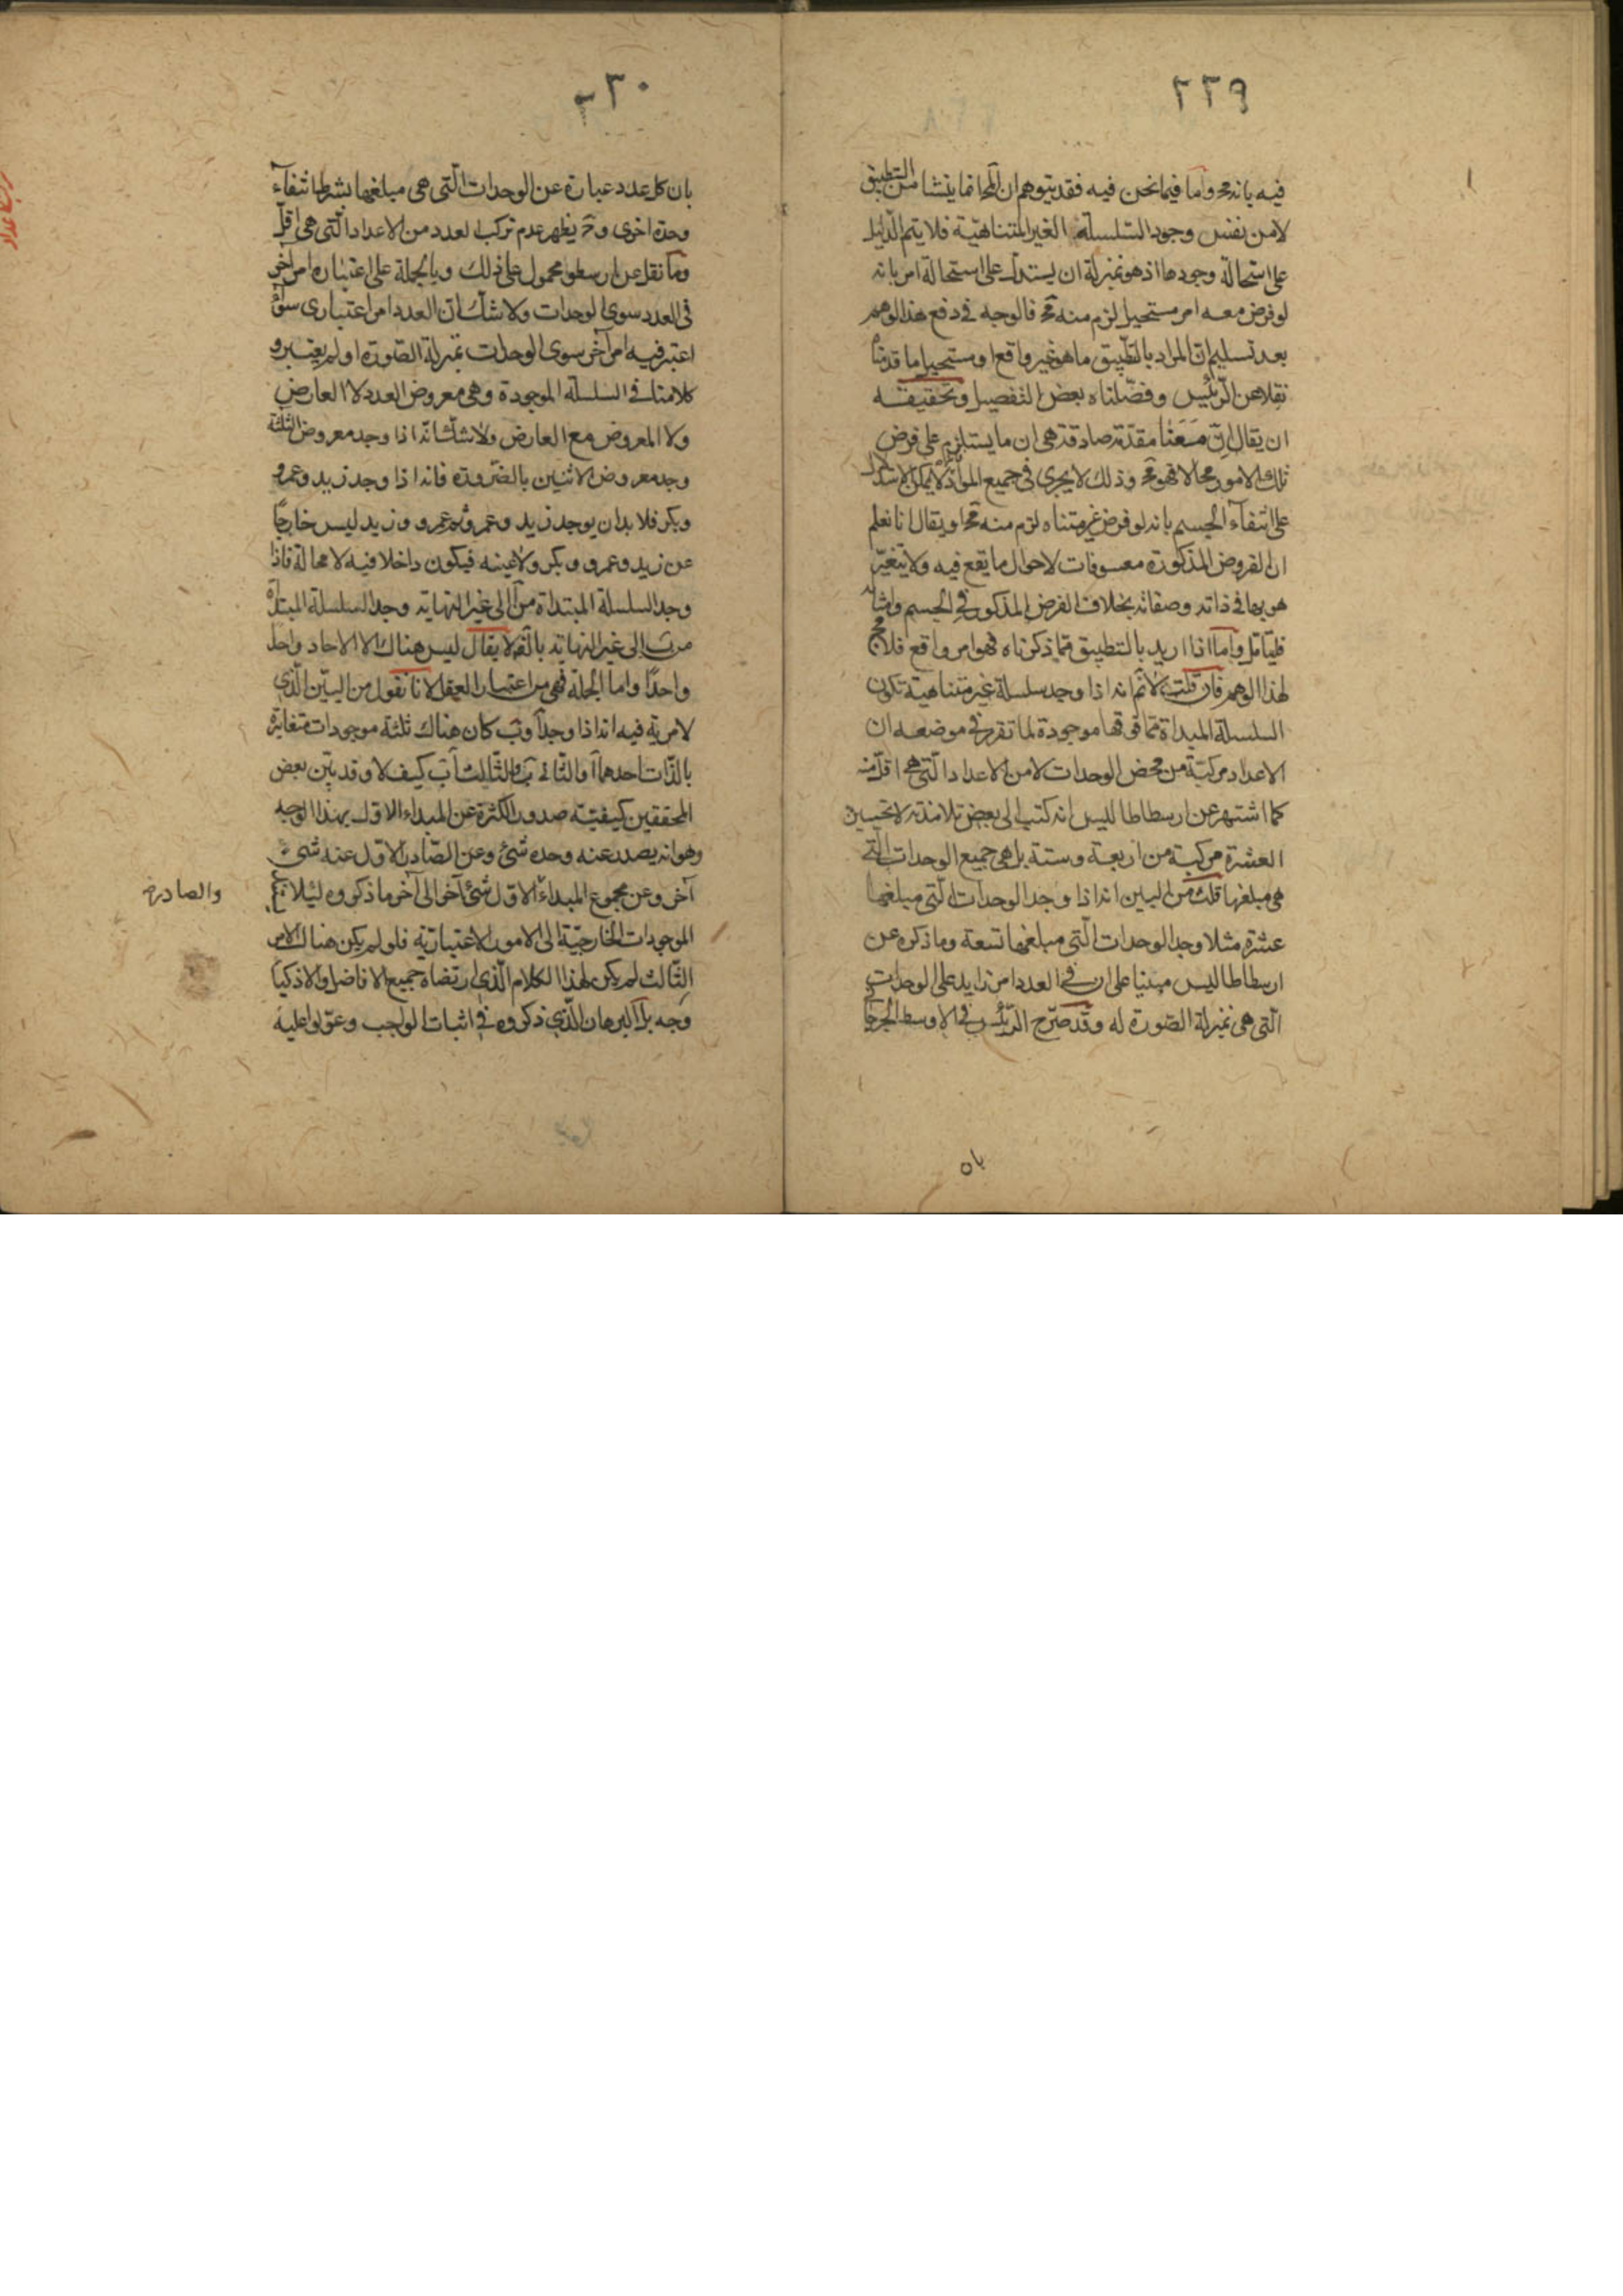 ٢٢٩
فيه بانه مح واما فيما نحن فيه فقد يتوهم ان المح انما ينشا من التطبيق
لا من نفس وجود السلسلة الغير المتناهية فلا يتم الدليل
على استحالة وجودها اذ هو بمنزلة ان يستدل على استحالة امر بانه
لو فرض معه امر مستحيل لزم منه مح فالوجه في دفع هذا الوهم
بعد تسليم ان المراد بالتطبيق ما هو غير واقع او مستحيل ما قدمنا
نقلا عن الرئيس وفصلناه بعض التفصيل وتحقيقه
ان يقال ان معنا مقدمة صادقة هي ان ما يستلزم على فرض
تلك الامور محالا فهو مح وذلك لا يجري في جميع المواد لا يمكن الاستدلال
على انتفاء الجسم بانه لو فرض غير متناه لزم منه مح او يقال انا نعلم
ان الفروض المذكورة معسوفات لاحوال ما يقع فيه ولا يتغير
هو بها في ذاته وصفاته بخلاف الفرض المذكور في الجسم وامثاله
فليتامل واما اذا اريد بالتطبيق ما ذكرناه فهو امر واقع فلا مح
لهذا الوهم فان قلت لا نم انه اذا وجد سلسلة غير متناهية تكون
السلسلة المبداة مما فوقها موجودة لما تقرر في موضعه ان
الاعداد مركبة من محض الوحدات لا من الاعداد التي هي اقل منه
كما اشتهر عن ارسطاطاليس انه كتب الى بعض تلامذته لا تحسبن
العشرة مركبة من اربعة وستة بل هي جميع الوحدات التي
هي مبلغها قلت من البين انه اذا وجد الوحدات التي مبلغها
عشرة مثلا وجد الوحدات التي مبلغها تسعة وما ذكره عن
ارسطاطاليس مبنيا على ان في العدد امر زايد على الوحدات
التي هي بمنزلة الصورة له وقد صرح الرئيس في الاوسط الجرجاني
بان
٢٣٠
بان كل عدد عبارة عن الوحدات التي هي مبلغها بشرط انتفاء
وحدة اخرى وح يظهر عدم تركب العدد من الاعداد التي هي اقل
وما نقل عن ارسطو محمول على ذلك وبالجملة على اعتبار امر آخر
في العدد سوى الوحدات ولا شك ان العدد امر اعتباري سواء
اعتبر فيه امر آخر سوى الوحدات بمنزلة الصورة او لم يعتبر و
كلامنا في السلسلة الموجودة وهي معروض العدد لا العارض
ولا المعروض مع العارض ولا شك انه اذا وجد معروض الثلثة
وجد معروض الاثنين بالضرورة فانه اذا وجد زيد وعمرو
وبكر فلا بد ان يوجد زيد وعمرو ثم عمرو وزيد ليس خارجا
عن زيد وعمرو وبكر ولا عينه فيكون داخلا فيه لا محالة فاذا
وجد السلسلة المبتداة من آ الى غير النهاية وجد السلسلة المبتداة
من ب الى غير النهاية بالضرورة لا يقال ليس هناك الا الاحاد واحدا
واحدا واما الجملة فهي من اعتبار العقل لانا نقول من البين الذي
لا مرية فيه انه اذا وجد آ وب كان هناك ثلثة موجودات متغايرة
بالذات احدهما آ والثاني ب والثالث آب كيف لا وقد بين بعض
المحققين كيفية صدور الكثرة عن المبداء الاول بهذا الوجه
وهو انه يصدر عنه وحده شئ وعن الصادر الاول عنه شئ
آخر وعن مجموع المبداء الاول شئ آخر الى آخر ما ذكروه ليلا
والصادر
الموجودات الخارجية الى الامور الاعتبارية فلو لم يكن هناك الامر
الثالث لم يكن لهذا الكلام الذي ارتضاه جميع الافاضل والاذكيا
وجه بل البرهان الذي ذكروه في اثبات الواجب وعولوا عليه